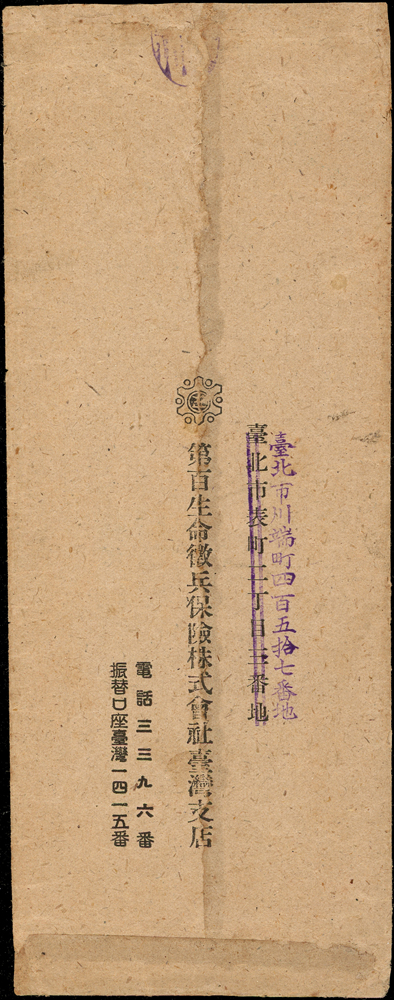 臺北市川端町四百五拾七番地
臺北市表町二丁目三番地
第百生命徵兵保險株式會社臺灣支店
電話三三九六番
振替口座臺灣一四一五番